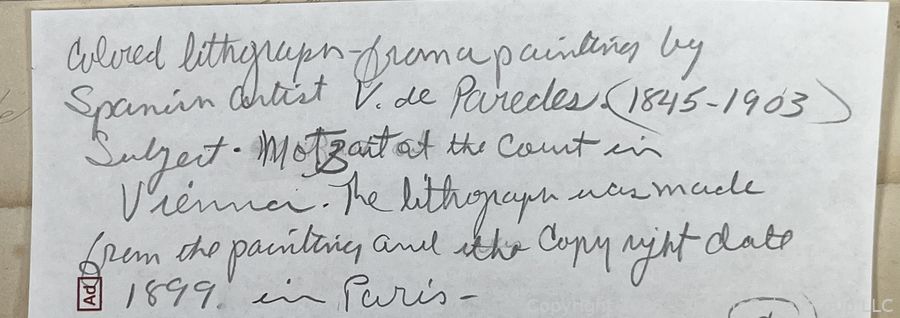 Colored lithograph - from a painting by
Spanish Artist V. de Paredes. (1845-1903)
Subject. Motzart at the Court in
Vienna. The lithograph was made
from the painting and the Copy right date
1899. in Paris -
Ad
Copyright LLC